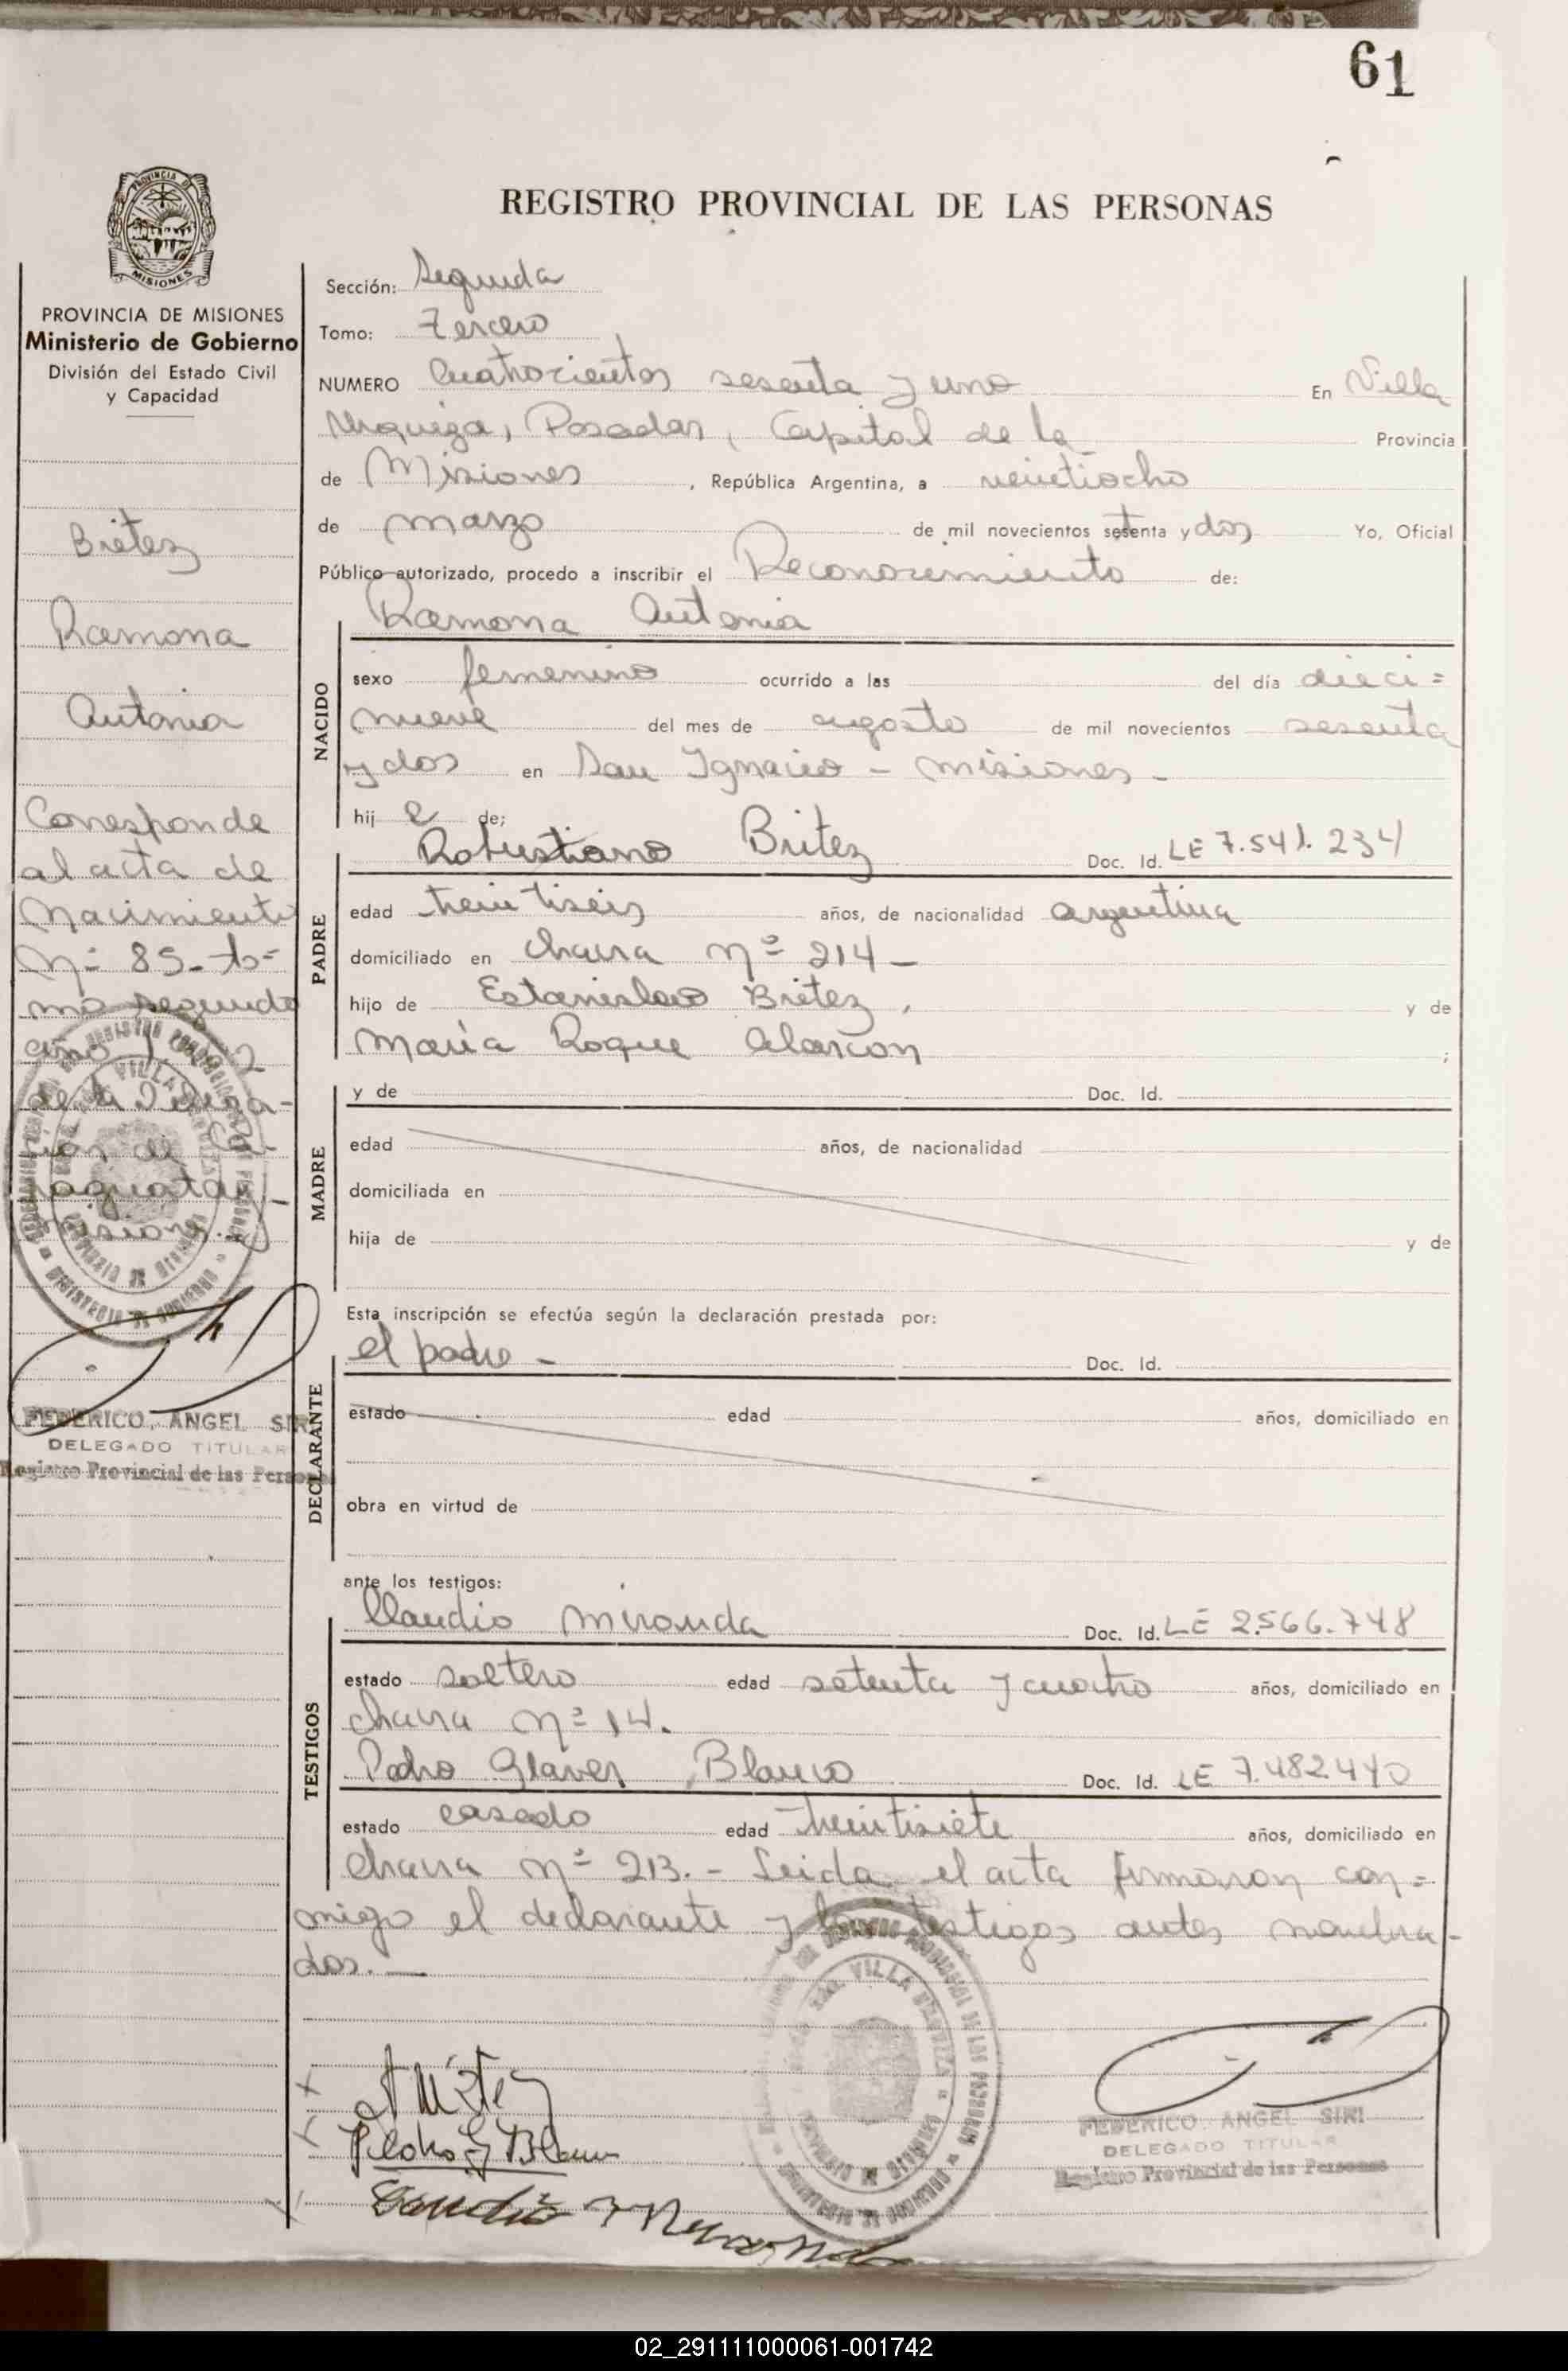 61
REGISTRO PROVINCIAL DE LAS PERSONAS
PROVINCIA DE MISIONES
PROVINCIA DE MISIONES
Ministerio de Gobierno
División del Estado Civil
y Capacidad
Britez
Ramona
Antonia
Corresponde
al acta de
Nacimiento
Nº 85- to=
mo segundo
año 1962
de la Delega-
ción de
Misiones.
FEDERICO ANGEL SIRI
DELEGADO TITULAR
Registro Provincial de las Personas
Sección: Segunda
Tomo: Tercero
NUMERO Cuatrocientos sesenta y uno En Villa
Urquiza, Posadas, Capital de la Provincia
de Misiones, República Argentina, a veintiocho
de marzo de mil novecientos setenta y dos Yo, Oficial
Público autorizado, procedo a inscribir el Reconocimiento de:
Ramona Antonia
NACIDO
sexo femenino ocurrido a las del día dieci=
nueve del mes de agosto de mil novecientos sesenta
y dos en San Ignacio - Misiones -
hij a de;
Robustiano Britez Doc. Id. LE 7.541.234
PADRE
edad treintiseis años, de nacionalidad argentina
domiciliado en chacra nº 214 -
hijo de Estanislao Britez, y de
María Roque Alarcon ;
MADRE
y de Doc. Id.
edad años, de nacionalidad
domiciliada en
hija de y de
Esta inscripción se efectúa según la declaración prestada por:
DECLARANTE
el padre - Doc. Id.
estado edad años, domiciliado en
obra en virtud de
ante los testigos:
TESTIGOS
Claudio Miranda Doc. Id. LE 2.566.748
estado soltero edad setenta y cuatro años, domiciliado en
chacra nº 14.
Pedro Glaver Blanco Doc. Id. LE 7.482.440
estado casado edad treintisiete años, domiciliado en
chacra nº 213. - Leida el acta firmaron con=
migo el declarante y los testigos antes nombra-
dos. —
Pedro G Blanco
Claudio Miranda
VILLA URQUIZA
FEDERICO ANGEL SIRI
DELEGADO TITULAR
Registro Provincial de las Personas
02_291111000061-001742